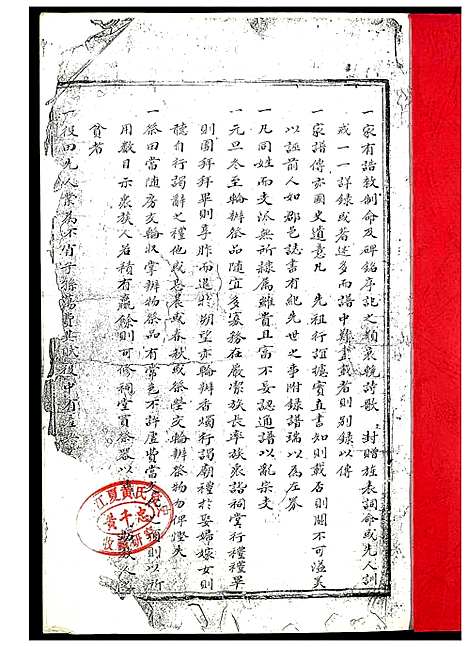 一家有誥敕制命及碑銘序記之類哀輓詩歌 封贈旌表詞命或先人訓
戒一一詳錄或者述多而譜中難盡載者則別錄以傳
一家譜傳亦國史遺意凡 先祖行誼據實直書知則載否則闕不可溢美
以誣前人如郡邑誌書有紀先世之事附錄譜瑞以為左券
一凡同姓而支派無所隸屬雖貴且富不妄認通譜以亂宗支
一元旦冬至輪辦祭品隨宜多寡務在嚴潔族長率族衆詣祠堂行禮禮畢
則團拜拜畢則享胙而退於朔望亦輪辦香燭行謁廟禮於娶婦嫁女則
聽自行謁辭之禮他或忌晨或春秋或祭塋交輪辦祭物勿俾墜失
祭田當隨房交輪收掌辦物祭品有常色不許虛費當 之 則以所
用數目示衆族人若積有贏餘則可修祠堂首祭器以 族人
貧者
一役田先人業為不肖子孫蕩費 中有
江夏黃氏
黃千忠
收